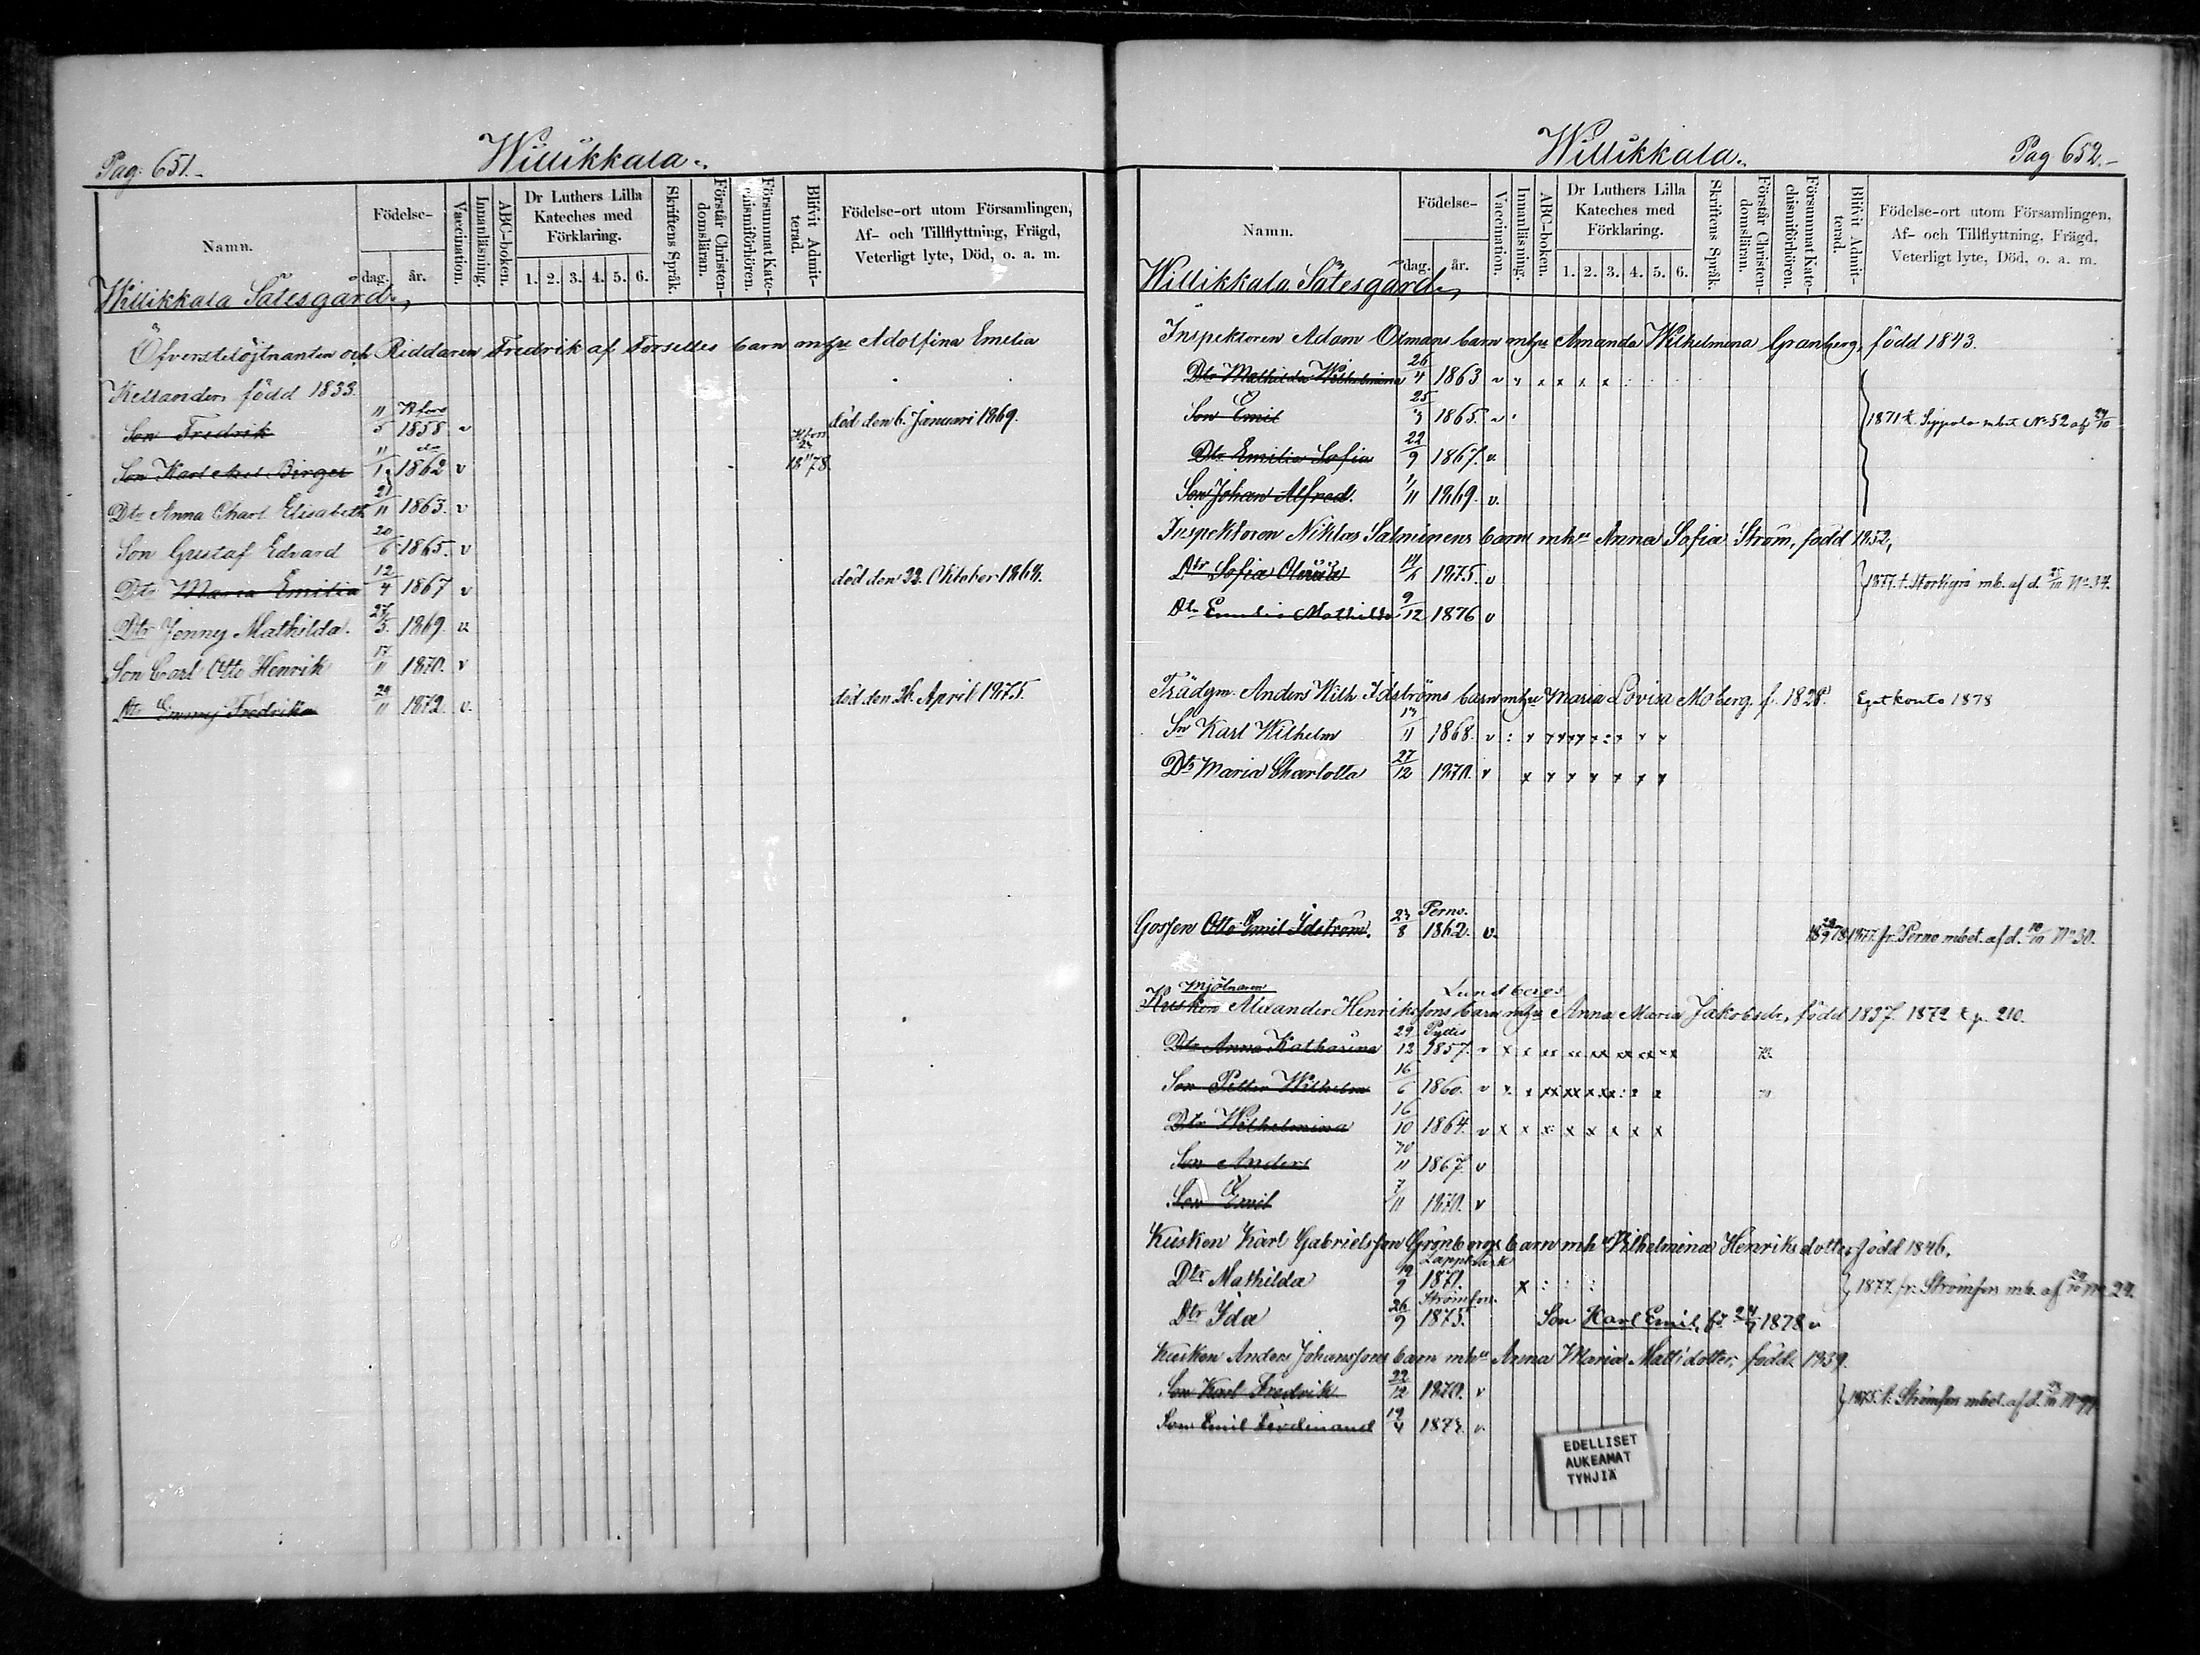 Pag: 651.-
Willikkala.
Namn.
Födelse-
dag.
år.
Vaccination.
Innanläsning.
ABC-boken.
Dr Luthers Lilla
Kateches med
Förklaring.
1. 2. 3. 4. 5. 6.
Skriftens Språk.
Förstår Christen-
domsläran.
Försummat Kate-
chismiförhören.
Blifvit Admit-
terad.
Födelse-ort utom Församlingen,
Af- och Tillflyttning, Frägd,
Veterligt lyte, Död, o. a. m.
Willikkala Sätesgård.
Öfverstelöjtnanten och Riddaren Fredrik af Forselles barn mhu Adolfina Emelia
Kellander, född 1833.
Son Fredrik 11/5 1858 v död den 6. Januari 1869.
Son Karl Axel Birger 1862 v 1878.
Dtr Anna Charl. Elisabeth 21/11 1863. v
Son Gustaf Edvard 20/6 1865. v
Dtr Maria Emilia 12/4 1867 v död den 22. Oktober 1868.
Dtr Jenny Mathilda. 27/3. 1869. v
Son Carl Otto Henrik 17/11 1870. v
Dtr Emmy Fredrika 29/11 1872. v. död den 26. April 1875.
Willikkala.
Pag 652.-
Namn.
Födelse-
dag.
år.
Vaccination.
Innanläsning.
ABC-boken.
Dr Luthers Lilla
Kateches med
Förklaring.
1. 2. 3. 4. 5. 6.
Skriftens Språk.
Förstår Christen-
domsläran.
Försummat Kate-
chismiförhören.
Blifvit Admit-
terad.
Födelse-ort utom Församlingen,
Af- och Tillflyttning, Frägd,
Veterligt lyte, Död, o. a. m.
Willikkala Sätesgård.
Inspektoren Adam Ormans barn mhu Amanda Wilhelmina Granberg, född 1843.
Dtr Mathilda Wilhelmina 26/4 1863 v
Son Emil 25/3 1865. v 1871 t. Sippola mbet No 52 af 24/10
Dtr Emilia Sofia 22/9 1867. v.
Son Johan Alfred. 1/11 1869. v.
Inspektoren Niklas Salminens barn mhu Anna Sofia Ström, född 1852,
Dtr Sofia 1875. v 1877. t. mb. af d. No 34.
Dtr Mathilda 9/12 1876 v
Trädgm. Anders Wilh. Idströms barn mhu Maria Lovisa Moberg, f. 1828. Eget konto 1878
Sn Karl Wilhelm 1868. v
Dtr Maria Charlotta 27/12 1870. v
Gossen Otto Emil Idström. 23/8 Perno. 1862. v. 1878 1877. fr. Perno mbet. af d. No 30.
Mjölnaren Lundbergs
Kusken Alexander Henrikssons barn mhu Anna Maria Jakobsdr, född 1837. 1872 t p. 210.
Dtr Anna Katharina 29/12 Pyttis 1857. v
Son Petter Wilhelm 16/6 1860. v
Dtr Wilhelmina 16/10 1864. v x x x x x x x x
Son Anders 30/11 1867. v
Son Emil 7/11 1870. v
Kusken Karl Gabrielsson Grönbergs barn mhu Wilhelmina Henriksdotter född 1846.
Dtr Mathilda Lappträsk 1871. 1877. fr. Strömfors mb. af No 29.
Dtr Ida 26/9 Strömfors 1875. Son Karl Emil, f. 1878 v
Kusken Anders Johanssons barn mhu Anna Maria Mattsdotter, född. 1839.
Son Karl Fredrik 22/12 1870. v 1875. t. Strömfors mbet. af d.
Son Emil Ferdinand 19/4 v
EDELLISET
AUKEAMAT
TYHJIÄ